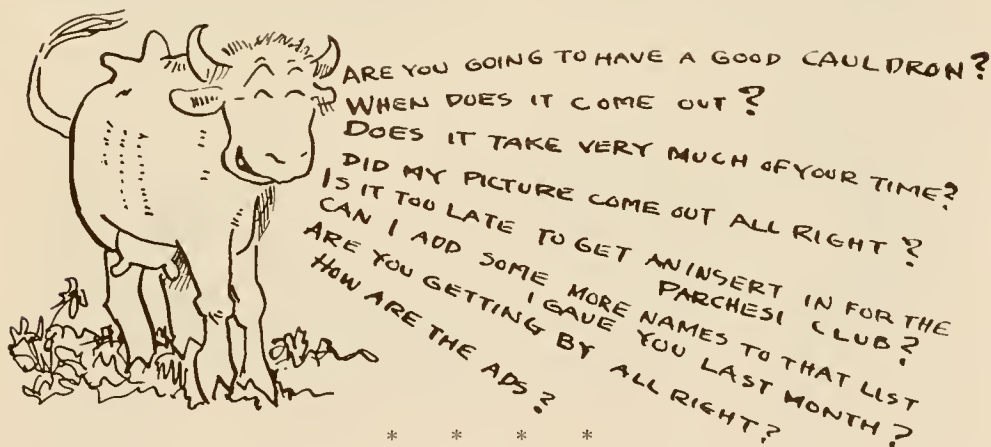 ARE YOU GOING TO HAVE A GOOD CAULDRON?
WHEN DOES IT COME OUT?
DOES IT TAKE VERY MUCH OF YOUR TIME?
DID MY PICTURE COME OUT ALL RIGHT?
IS IT TOO LATE TO GET AN INSERT IN FOR THE
PARCHESI CLUB?
CAN I ADD SOME MORE NAMES TO THAT LIST
I GAVE YOU LAST MONTH?
ARE YOU GETTING BY ALL RIGHT?
HOW ARE THE ADS?
* * * *